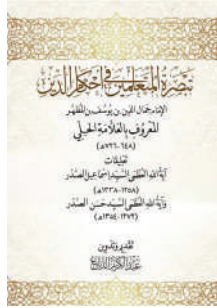 تبصرة المتعلمين في أحكام الدين
الإمام جمال الدين بن يوسف بن المطهر
المعروف بالعلامة الحلي
(٦٤٨-٧٢٦هـ)
تعليقات
آية الله العظمى السيد إسماعيل الصدر
(١٢٥٨-١٣٣٨هـ)
وآية الله العظمى السيد حسن الصدر
(١٢٧٢-١٣٥٤هـ)
تقديم وتدوين
عبد الكريم الدباغ